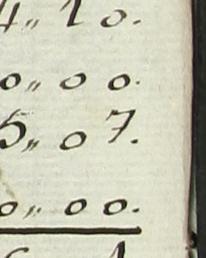 4„ 10.
0„ 00.
5„ 07.
0„ 00.